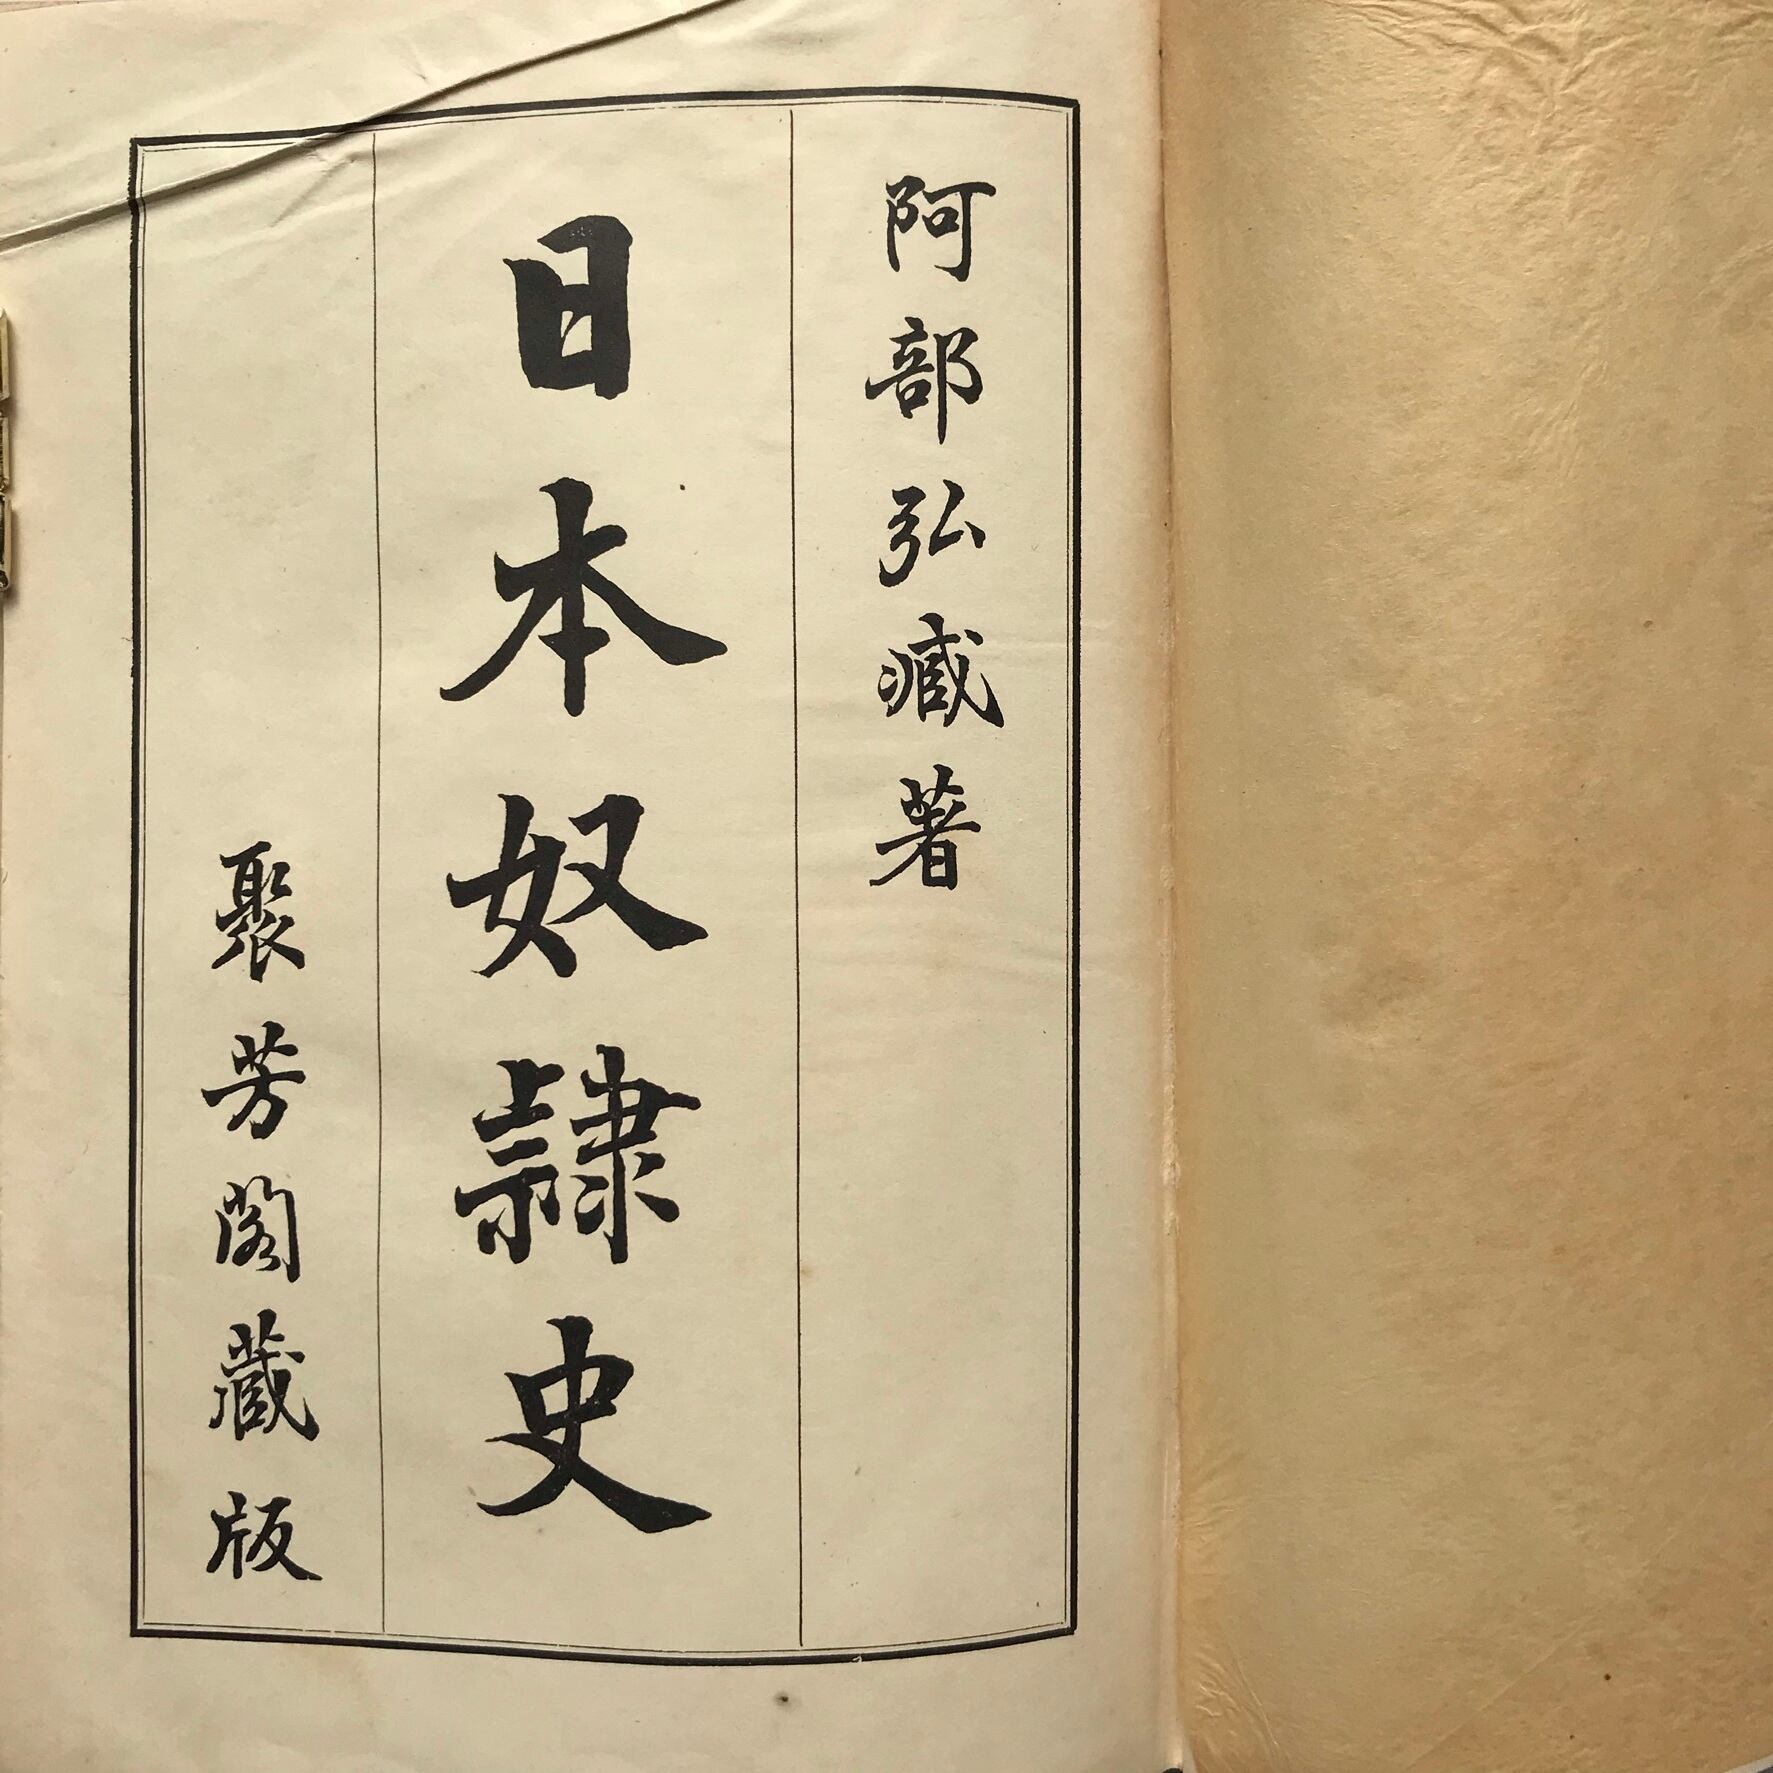 阿部弘臧著
日本奴隷史
聚芳閣藏版